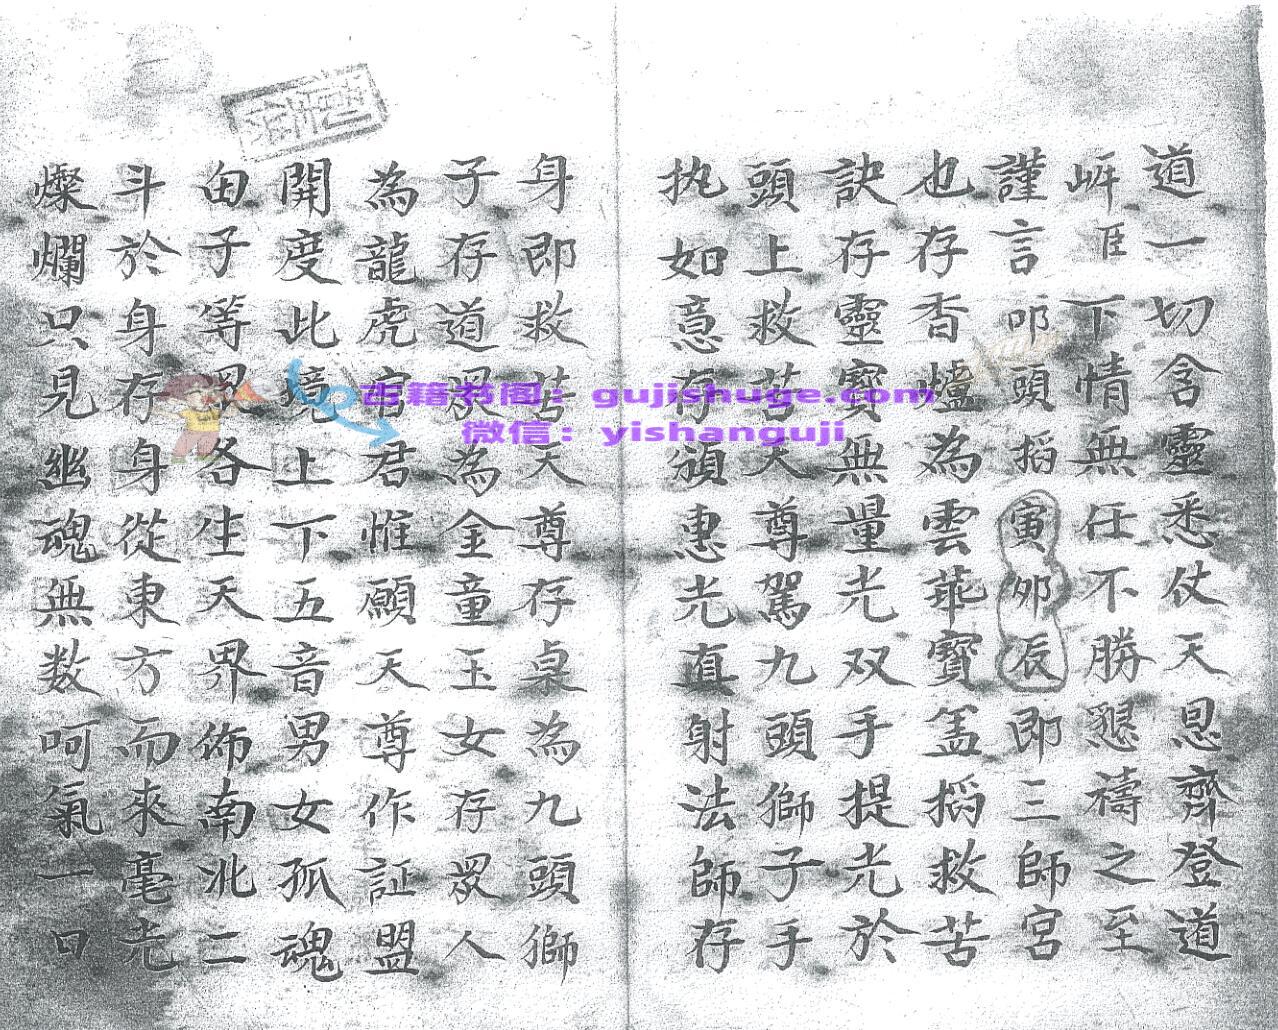 道一切含靈悉仗天恩齊登道
岸臣下情無任不勝懇禱之至
謹言叩頭搯寅夘辰即三師宮
也存香爐為雲華寶盖搯救苦
訣存靈寶無量光双手提光於
頭上救苦天尊駕九頭獅子手
执如意存頒惠光真射法師存
身即救苦天尊存桌為九頭獅
子存道眾為金童玉女存眾人
為龍虎官君惟願天尊作証盟
開度此境上下五音男女孤魂
由子等眾各生天界佈南北二
斗於身存身從東方而來毫光
燦爛只見幽魂無数呵氣一口
古籍书阁：gujishuge.com
微信：yishanguji